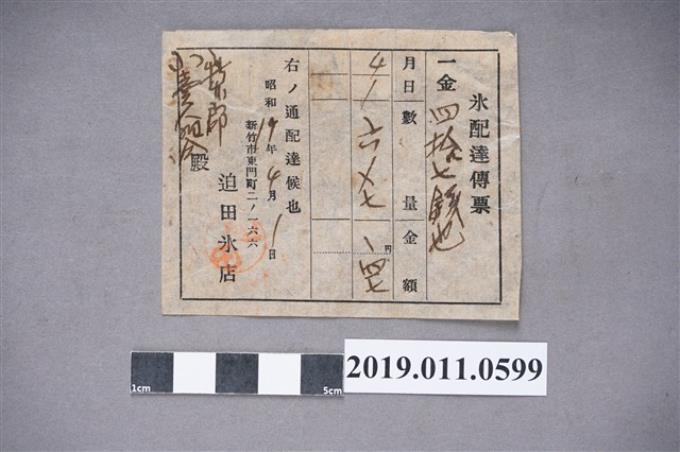 氷配達傳票
一金四拾七錢也
月日 數量 金額
4/1 六〆七 円 、四七
右ノ通配達候也
昭和19年4月1日
新竹市東門町二ノ一六六
迫田氷店
殿
1cm
5cm
2019.011.0599